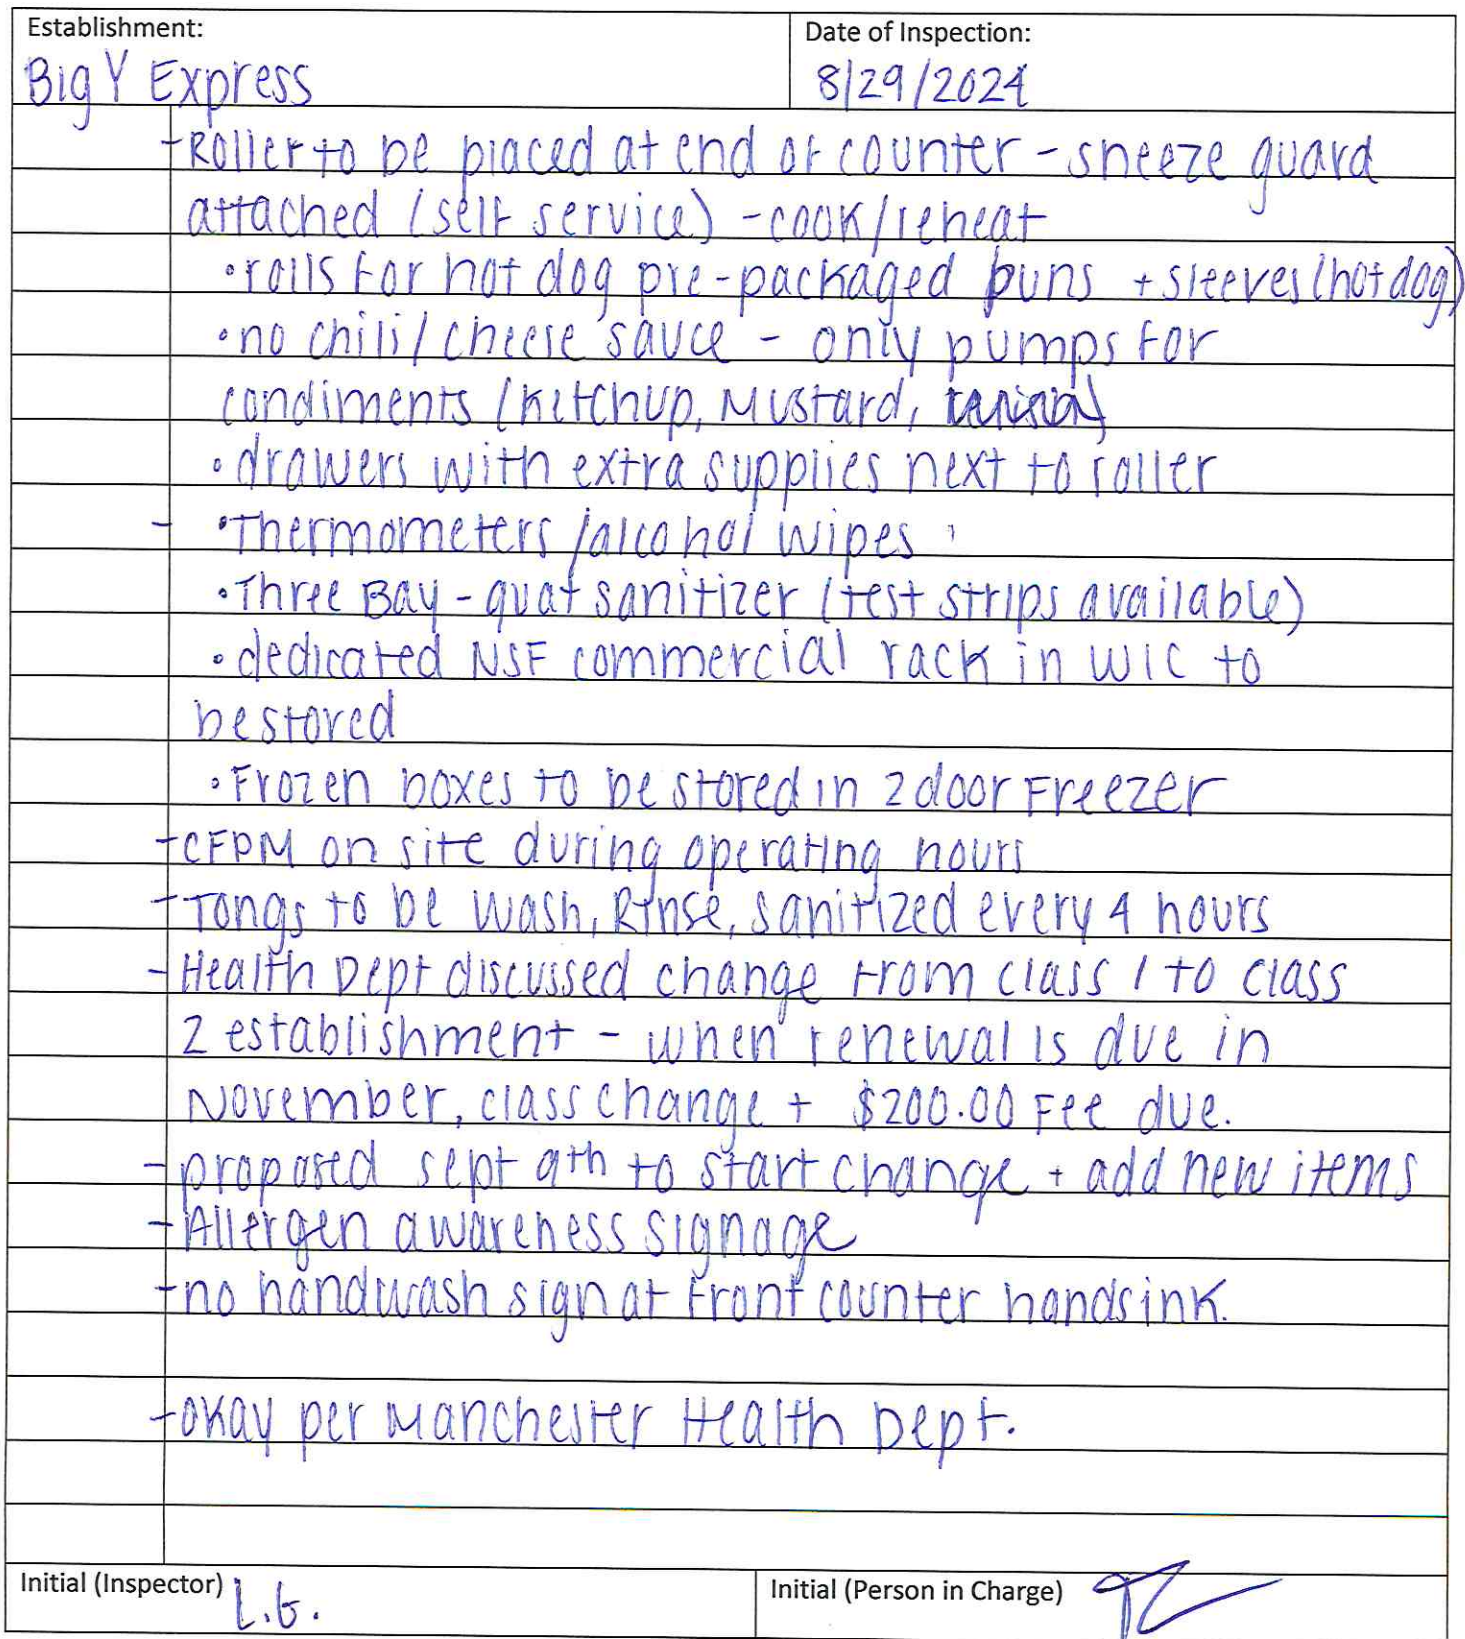 Establishment:
Big Y Express
Date of Inspection:
8/29/2024
-Roller to be placed at end of counter - sneeze guard
attached (self service) - cook/reheat
•rolls for hot dog pre-packaged buns + sleeves (hot dog)
•no chili/cheese sauce - only pumps for
condiments (Ketchup, Mustard,
•drawers with extra supplies next to roller
- •Thermometers/alcohol wipes
•Three Bay - quat sanitizer (test strips available)
•dedicated NSF commercial rack in WIC to
be stored
•Frozen boxes to be stored in 2 door Freezer
-CFPM on site during operating hours
-Tongs to be wash, Rinse, sanitized every 4 hours
-Health Dept discussed change from class 1 to class
2 establishment - when renewal is due in
November, class change + $200.00 Fee due.
-proposed sept 9th to start change + add new items
-Allergen awareness signage
-no handwash sign at front counter handsink.
-okay per Manchester Health Dept.
Initial (Inspector) L.G.
Initial (Person in Charge)